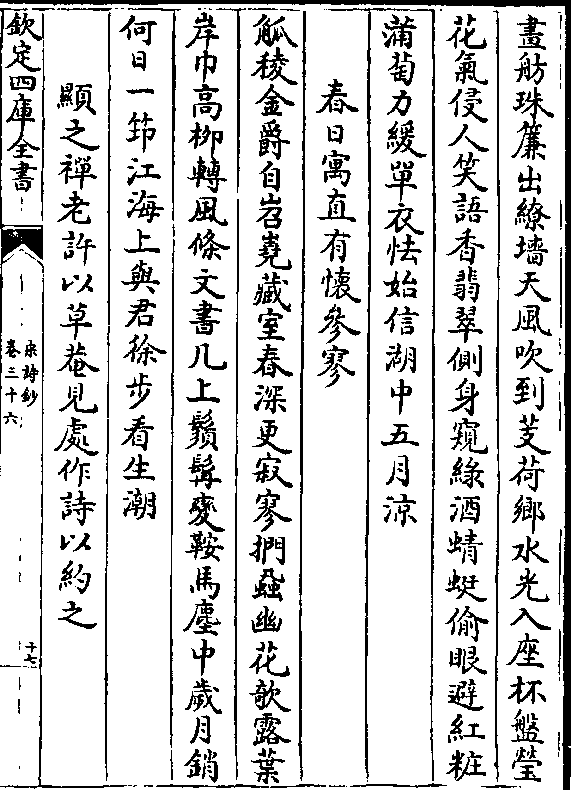 畫舫珠簾出繚墻天風吹到芰荷鄉水光入座杯盤瑩
花氣侵人笑語香翡翠側身窺綠酒蜻蜓偷眼避紅粧
蒲萄力緩單衣怯始信湖中五月涼
春日寓直有懷參寥
觚稜金爵自岧嶤藏室春深更寂寥捫蝨幽花欹露葉
岸巾高栁轉風條文書几上鬚髯變鞍馬塵中歲月銷
何日一笻江海上與君徐步看生潮
顯之禪老許以草菴見處作詩以約之
欽定四庫全書
宋詩鈔
卷三十六
十七